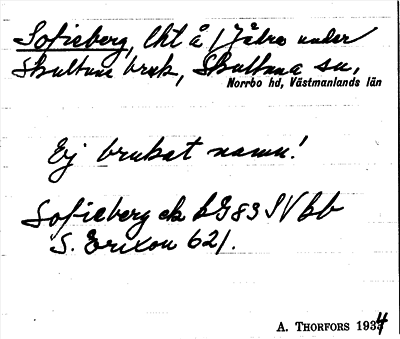 Sofieberg, lht å 1 Jädra under
Skultuna bruk, Skultuna sn,
Norrbo hd, Västmanlands län
Ej brukat namn!
Sofieberg ek bG 83 SV bb
S. Erixon 621.
A. THORFORS 1934